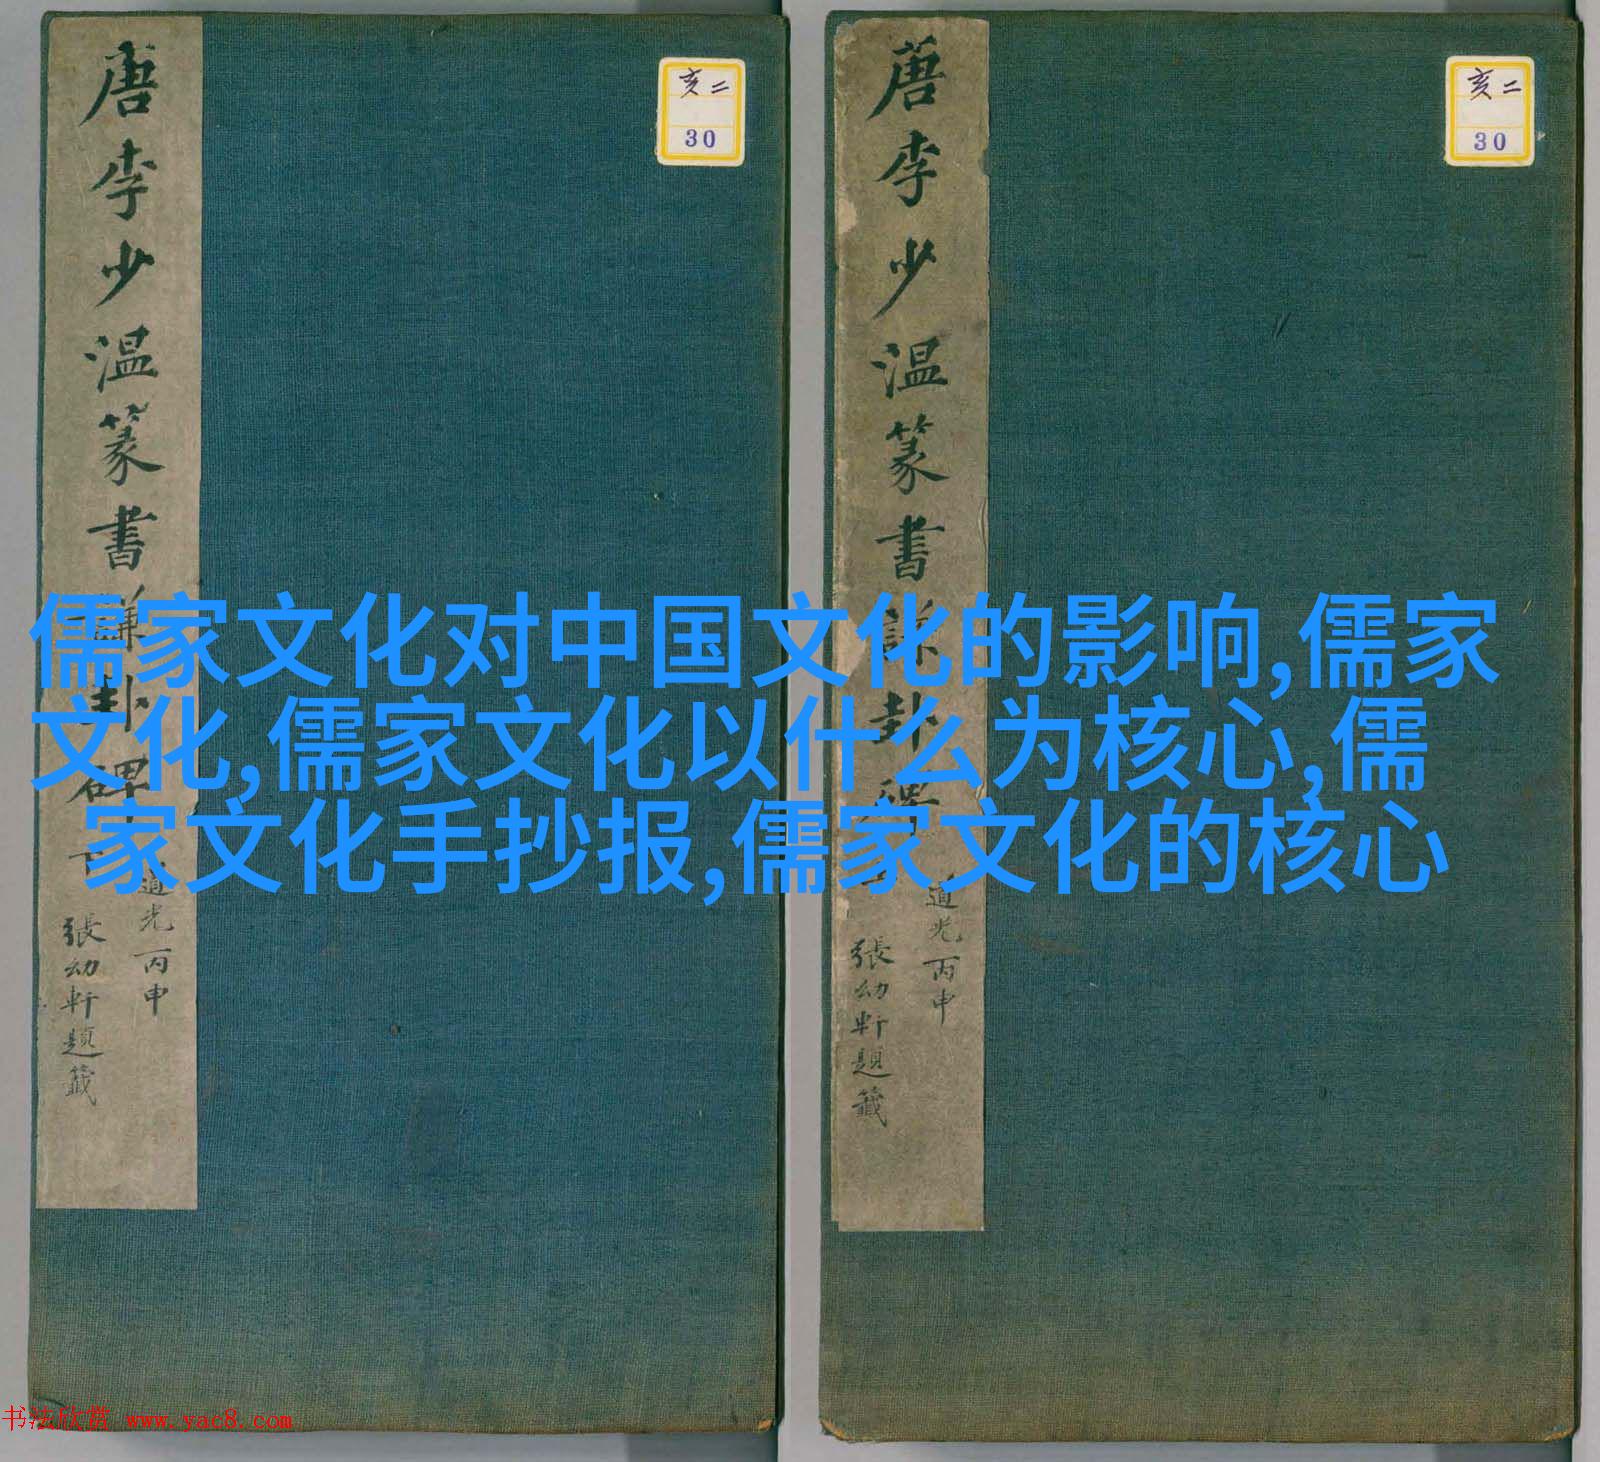 唐李少温篆書謙卦碑
道光丙申
張幼軒題籤
亥二
30
唐李少温篆書謙卦碑
道光丙申
張幼軒題籤
亥二
30
儒家文化对中国文化的影响,儒家
文化,儒家文化以什么为核心,儒
家文化手抄报,儒家文化的核心
书法欣赏 www.yac8.com